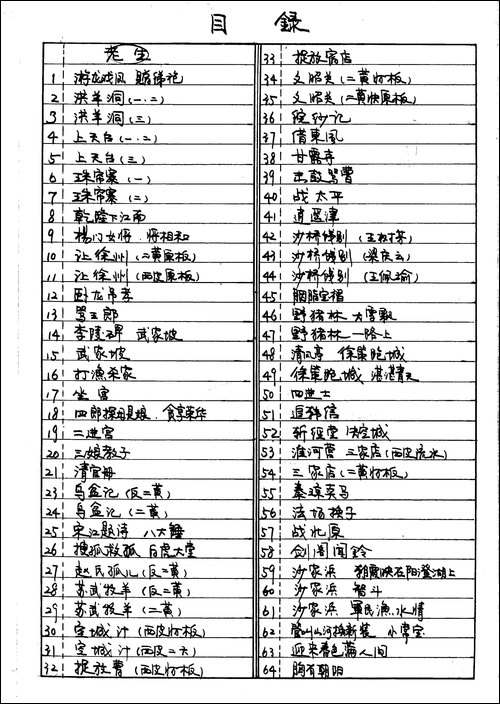 目 録
老生
1 游龙戏凤 赐绨袍
2 洪羊洞(一.二)
3 洪羊洞(三)
4 上天台(一.二)
5 上天台(三)
6 珠帘寨(一)
7 珠帘寨(二)
8 乾隆下江南
9 杨门女将.将相和
10 让徐州(二黄原板)
11 让徐州(西皮原板)
12 卧龙吊孝
13 骂王郎
14 李陵碑 武家坡
15 武家坡
16 打渔杀家
17 坐宫
18 四郎探母见娘.食享荣华
19 二进宫
20 三娘教子
21 清官册
23 乌盆记(反二黄)
24 乌盆记(二黄)
25 宋江题诗 八大锤
26 搜孤救孤 白虎大堂
27 赵氏孤儿(反二黄)
28 苏武牧羊(反二黄)
29 苏武牧羊(二黄)
30 空城计(西皮慢板)
31 空城计(西皮二六)
32 捉放曹(西皮慢板)
33 捉放宿店
34 文昭关(二黄慢板)
35 文昭关(二黄快原板)
36 院纱记
37 借東風
38 甘露寺
39 击鼓骂曹
40 战太平
41 逍遥津
42 沙桥饯别
43 沙桥饯别
44 沙桥饯别(王佩瑜)
45 胭脂宝褶
46 野猪林 大雪飘
47 野猪林一路上
48 清风亭 徐策跑城
49 徐策跑城 湛湛青天
50 四进士
51 追韩信
52 斩经堂
53 淮河营 三家店(西皮流水)
54 三家店(二黄慢板)
55 秦琼卖马
56 法场换子
57 战北原
58 剑阁闻鈴
59 沙家浜 朝霞映在阳澄湖上
60 沙家浜 智斗
61 沙家浜 軍民漁水情
62 管叫山河换新装 小常宝
63 迎来春色满人间
64 胸有朝阳